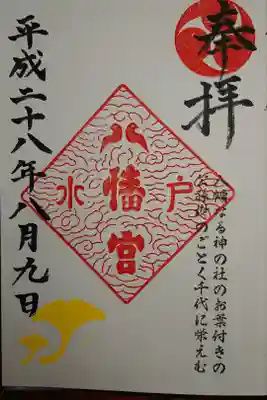 奉拝
八幡なる神の社のお葉付きの
公孫樹のごとく千代に栄えむ
八幡宮
水戸
平成二十八年八月九日